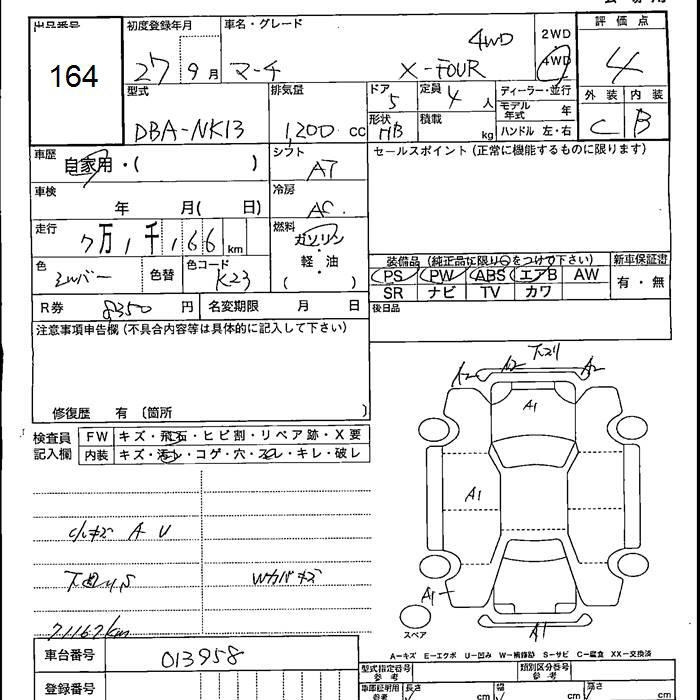 出品番号 初度登録年月 車名・グレード 2WD 4WD 評価点
164 27 9月 マーチ X-FOUR 4WD 4
型式 排気量 ドア 5 定員 4 人 ディーラー・並行 外装 内装
DBA-NK13 1,200 cc 形状 HB 積載 kg モデル年式 年 C B
ハンドル 左・右
車歴 自家用・( ) シフト AT セールスポイント(正常に機能するものに限ります)
車検 年 月( 日) 冷房 AC
走行 7万1千166 km 燃料 ガソリン 軽・油 ( )
色 シルバー 色替 色コード K23
装備品(純正品に限り○をつけて下さい) 新車保証書
PS PW ABS エアB AW 有・無
SR ナビ TV カワ
R券 8350 円 名変期限 月 日 後日品
注意事項申告欄(不具合内容等は具体的に記入して下さい)
修復歴 有(箇所 )
検査員記入欄 FW キズ・飛石・ヒビ割・リペア跡・X要
内装 キズ・汚レ・コゲ・穴・スレ・キレ・破レ
A2 A2 下スリ A2
A1
A1
A1
A1
スペア
A U
Wカバキズ
71167km
A=キズ E=エクボ U=凹み W=補修跡 S=サビ C=腐食 XX=交換済
車台番号 013958
登録番号
型式指定番号 参考 類別区分番号 参考
車庫証明用 参考 長さ cm 幅 cm 高さ cm